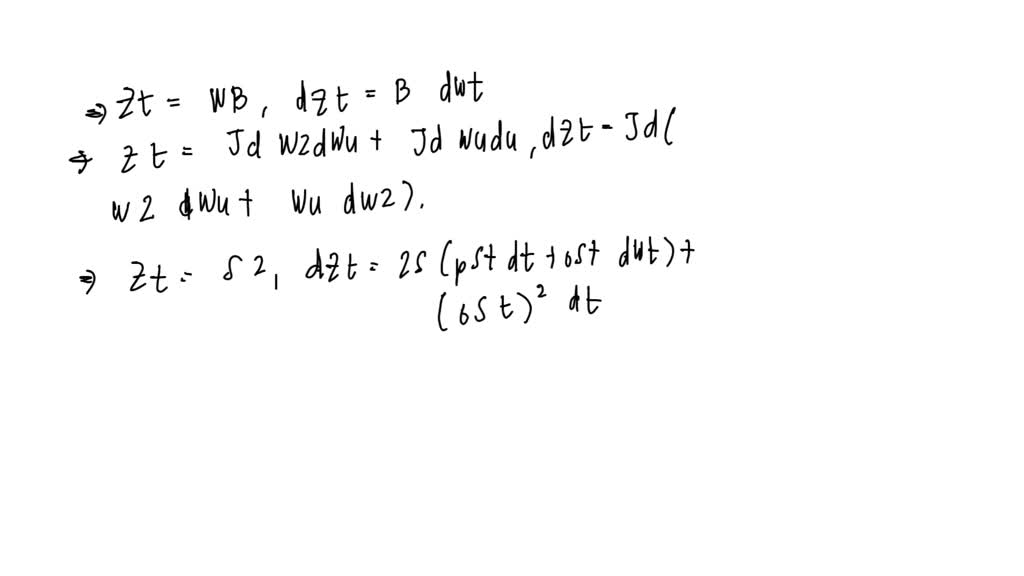 ⇒ Zt = WB, dZt = B dwt
⇒ Zt = Jd W2dWu + Jd Wudu, dZt = Jd(
W2 dWu + Wu dw2).
⇒ Zt = S2, dZt = 2S (pSt dt + oSt dWt) +
(6St)² dt